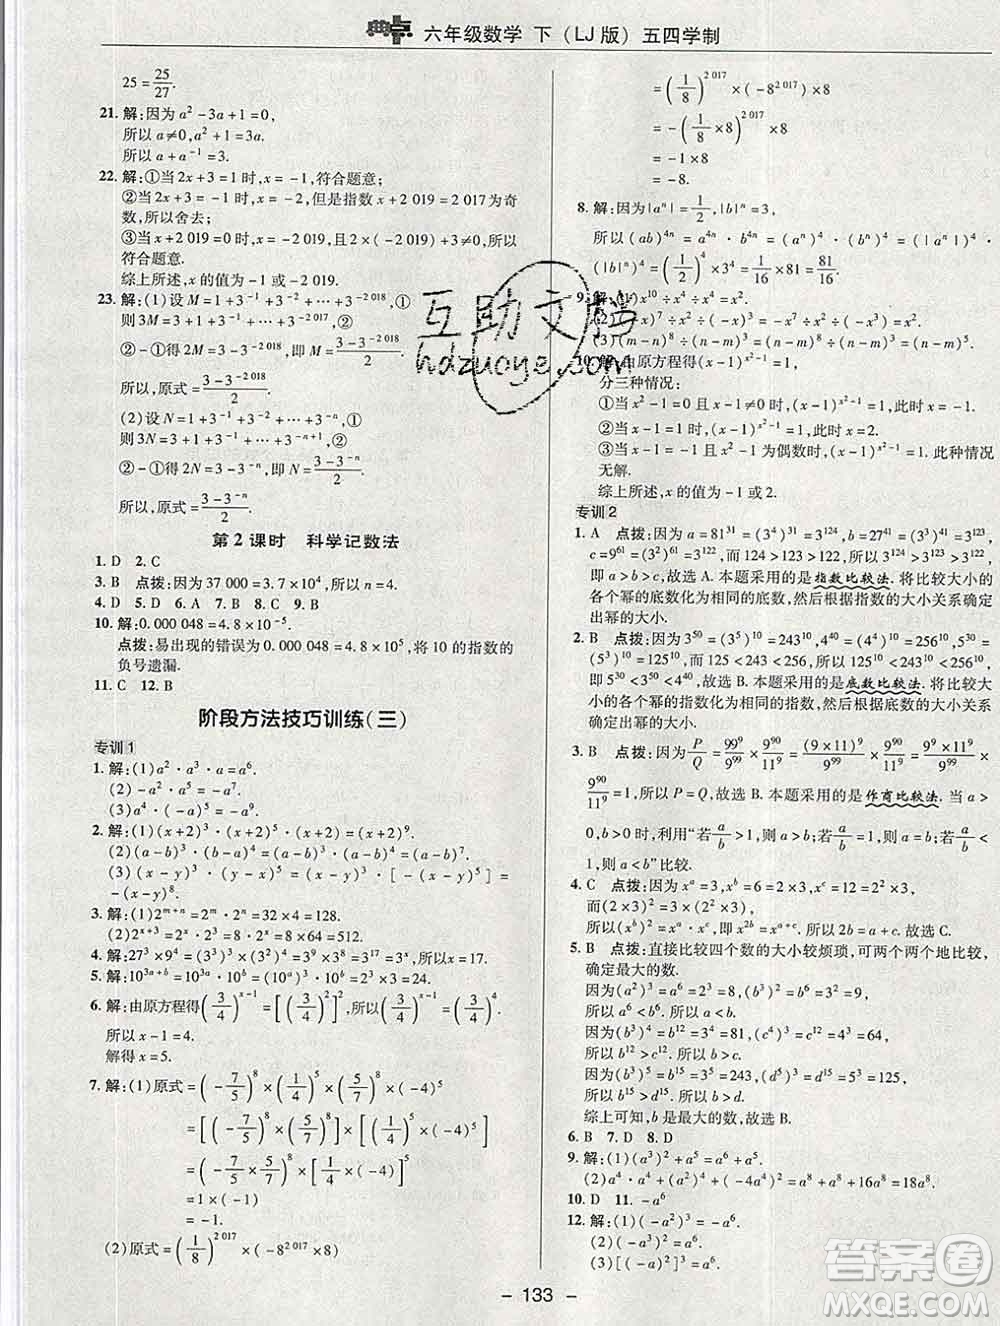 典点 六年级数学 下（LJ版）五四学制
25=25/27.
21. 解:因为 a²-3a+1=0,
所以 a≠0, a²+1=3a.
所以 a+a⁻¹=3.
22. 解:①当 2x+3=1时,x=-1,符合题意;
②当 2x+3=-1时,x=-2,但是指数 x+2 019=2 017为奇
数,所以舍去;
③当 x=-2 019时,2x+3≠0,且 2×(-2 019)+3≠0,所以
符合题意.
综上所述,x 的值为-1或-2 019.
23. 解:(1)设 M=1+3⁻¹+3⁻²+…+3⁻²⁰¹⁸,①
则 3M=3+1+3⁻¹+…+3⁻²⁰¹⁷,②
②-①得 2M=3-3⁻²⁰¹⁸,即 M=(3-3⁻²⁰¹⁸)/2.
所以,原式=(3-3⁻²⁰¹⁸)/2.
(2)设 N=1+3⁻¹+3⁻²+…+3⁻ⁿ,①
则 3N=3+1+3⁻¹+…+3⁻ⁿ⁺¹,②
②-①得 2N=3-3⁻ⁿ,即 N=(3-3⁻ⁿ)/2.
所以,原式=(3-3⁻ⁿ)/2.
第2课时 科学记数法
1. D 2. C
3. B 点拨:因为 37 000=3.7×10⁴,所以 n=4.
4. D 5. D 6. A 7. B 8. C 9. B
10. 解:0.000 048=4.8×10⁻⁵.
点拨:易出现的错误为0.000 048=4.8×10⁵,将10的指数的
负号遗漏.
11. C 12. B
阶段方法技巧训练(三)
专训1
1. 解:(1)a²·a³·a=a⁶.
(2)-a²·a⁵=-a⁷.
(3)a⁴·(-a)⁵=-a⁹.
2. 解:(1)(x+2)³·(x+2)⁵·(x+2)=(x+2)⁹.
(2)(a-b)³·(b-a)⁴=(a-b)³·(a-b)⁴=(a-b)⁷.
(3)(x-y)³·(y-x)⁵=(x-y)³·[-(x-y)⁵]=
-(x-y)⁸.
3. 解:(1)2ᵐ⁺ⁿ=2ᵐ·2ⁿ=32×4=128.
(2)2ˣ⁺³=2ˣ·2³=64×8=512.
4. 解:27³×9⁴=(3³)³×(3²)⁴=3⁹×3⁸=3¹⁷.
5. 解:10³ᵃ⁺ᵇ=10³ᵃ·10ᵇ=(10ᵃ)³·10ᵇ=2³×3=24.
6. 解:由原方程得(3/4)ˣ⁻¹=[(3/4)²]²,所以(3/4)ˣ⁻¹=(3/4)⁴.
所以 x-1=4.
解得 x=5.
7. 解:(1)原式=(-7/5)⁸×(1/4)⁵×(-5/7)⁸×(-4)⁵
=[(-7/5)⁸×(-5/7)⁸]×[(1/4)⁵×(-4)⁵]
=(7/5×5/7)⁸×[1/4×(-4)]⁵
=1×(-1)
=-1.
(2)原式=(1/8)²⁰¹⁷×(-8²⁰¹⁷×8)
=(1/8)²⁰¹⁷×(-8²⁰¹⁷)×8
=-(1/8×8)²⁰¹⁷×8
=-1×8
=-8.
8. 解:因为|aⁿ|=1/2,|b|ⁿ=3,
所以(ab)⁴ⁿ=a⁴ⁿ·b⁴ⁿ=(aⁿ)⁴·(bⁿ)⁴=(|aⁿ|)⁴·
(|b|ⁿ)⁴=(1/2)⁴×3⁴=1/16×81=81/16.
9. 解:(1)x¹⁰÷x⁴÷x⁴=x².
10. 解:由原方程得(x-1)ˣ²⁻¹=1.
分三种情况:
①当 x²-1=0且 x-1≠0时,(x-1)ˣ²⁻¹=1,此时 x=-1.
②当 x-1=1时,(x-1)ˣ²⁻¹=1,此时 x=2.
③当 x-1=-1且 x²-1为偶数时,(x-1)ˣ²⁻¹=1,此种情况
无解.
综上所述,x 的值为-1或2.
专训2
1. A 点拨:因为 a=81³¹=(3⁴)³¹=3¹²⁴,b=27⁴¹=(3³)⁴¹=3¹²³,
c=9⁶¹=(3²)⁶¹=3¹²²,124>123>122,所以3¹²⁴>3¹²³>3¹²²,
即 a>b>c,故选A.本题采用的是指数比较法.将比较大小的
各个幂的底数化为相同的底数,然后根据指数的大小关系确定
出幂的大小.
2. B 点拨:因为3⁵⁰=(3⁵)¹⁰=243¹⁰,4⁴⁰=(4⁴)¹⁰=256¹⁰,5³⁰=
(5³)¹⁰=125¹⁰,而125<243<256,所以125¹⁰<243¹⁰<256¹⁰,
即5³⁰<3⁵⁰<4⁴⁰,故选B.本题采用的是底数比较法.将比较大
小的各个幂的指数化为相同的指数,然后根据底数的大小关系
确定出幂的大小.
3. B 点拨:因为P/Q=99⁹/9⁹⁹×11⁹/... 9⁹⁰=(9×11)⁹/9⁹⁹×9⁹⁰/11⁹=9⁹×11⁹/9⁹⁹×
9⁹⁰/11⁹=1,所以P=Q,故选B.本题采用的是作商比较法.当 a>
0,b>0时,利用“若a/b>1,则 a>b;若a/b=1,则 a=b;若a/b<
1,则 a<b”比较.
4. C 点拨:因为 xᵃ=3,xᵇ=6=2×3,xᶜ=12=2²×3,
而(2×3)²=2²×3×3=(2²×3)×3,
所以(xᵇ)²=xᵃ·xᶜ,即 x²ᵇ=xᵃ⁺ᶜ.所以2b=a+c.故选C.
5. B 点拨:直接比较四个数的大小较烦琐,可两个两个地比较,
确定最大的数.
因为(a²)³=a⁶=2³=8,(c³)²=c⁶=3²=9,
所以 a⁶<c⁶.所以 a<c.
因为(b³)⁴=b¹²=3⁴=81,(c⁴)³=c¹²=4³=64,
所以 b¹²>c¹².所以 b>c.
因为(b³)⁵=b¹⁵=3⁵=243,(d⁵)³=d¹⁵=5³=125,
所以 b¹⁵>d¹⁵.所以 b>d.
综上可知,b是最大的数,故选B.
6. B 7. D 8. D
9. 解:(1)(a³)²+a⁵=a⁶+a⁵.
(2)a⁴·a⁴+(a²)⁴+(-4a⁴)²=a⁸+a⁸+16a⁸=18a⁸.
10. D 11. -a⁶
12. 解:(1)(-a²)³=-a⁶.
(2)(-a³)²=a⁶.
- 133 -
互助文档
hdzuoye.com
答案圈
MXQE.COM